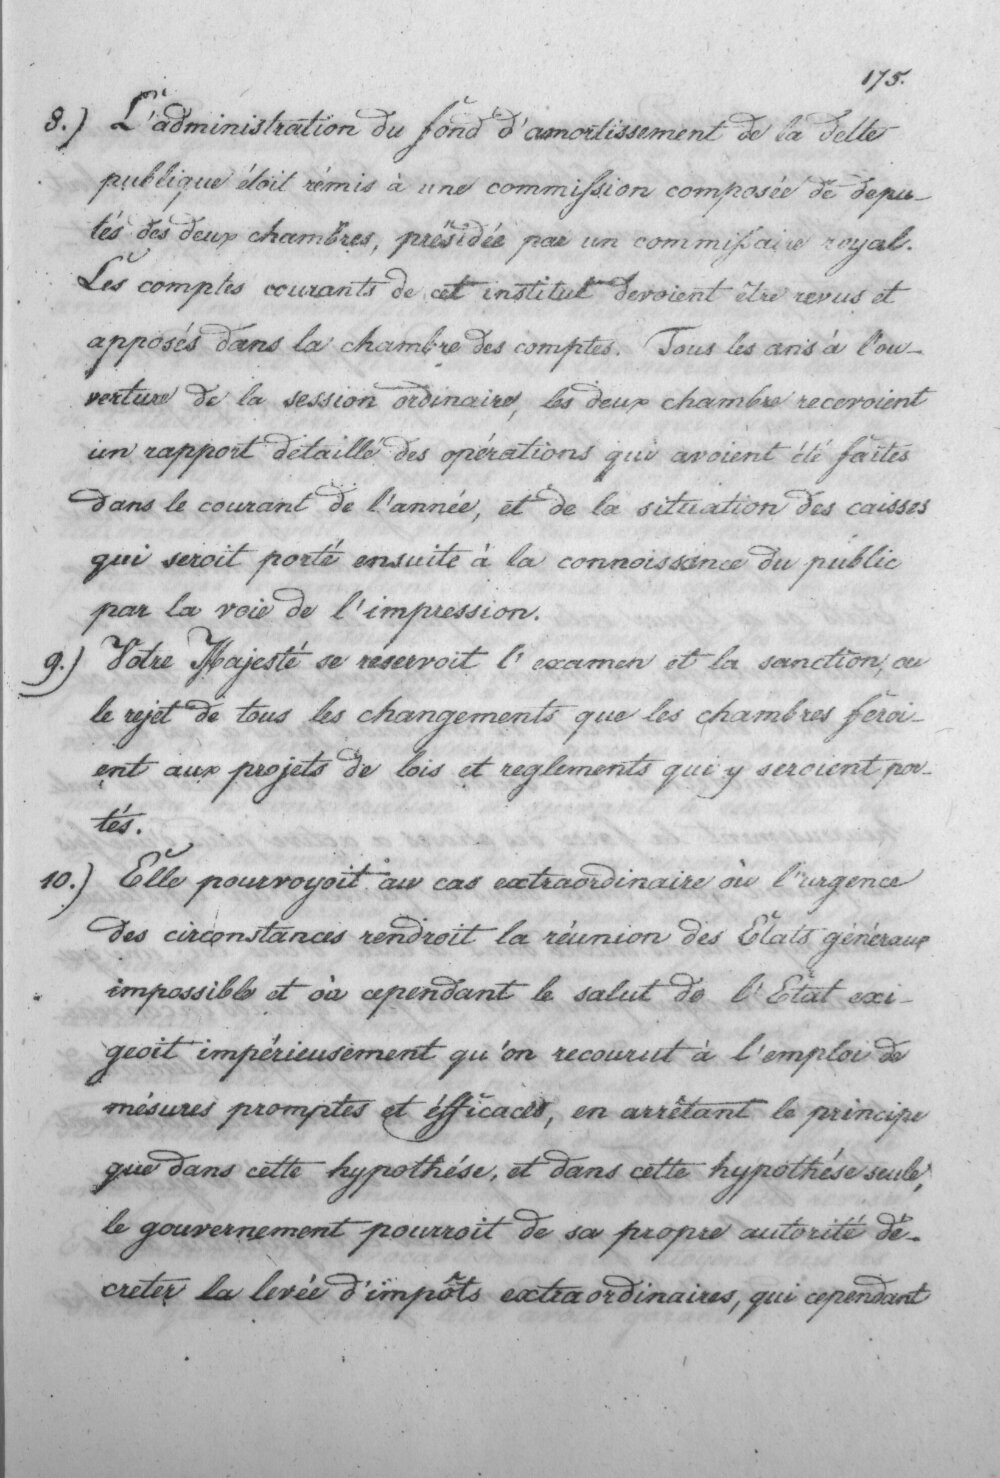 175.
8.) L'administration du fond d'amortissement de la dette
publique étoit rémis à une commission composée de depu-
tés des deux chambres, présidée par un commissaire royal.
Les comptes courants de cet institut devoient être revus et
apposés dans la chambre des comptes. Tous les ans à l'ou-
verture de la session ordinaire, les deux chambre recevoient
un rapport détaillé des opérations qui avoient été faites
dans le courant de l'année, et de la situation des caisses
qui seroit porté ensuite à la connoissance du public
par la voie de l'impression.
9.) Votre Majesté se réservoit l'examen et la sanction, ou
le rejet de tous les changements que les chambres feroi-
ent aux projets de lois et reglements qui y seroient por-
tés.
10.) Elle pourvoyoit au cas extraordinaire où l'urgence
des circonstances rendroit la réunion des Etats généraux
impossible et où cependant le salut de l'Etat exi-
geoit impérieusement qu'on recourut à l'emploi de
mésures promptes et éfficaces, en arrêtant le principe
que dans cette hypothése, et dans cette hypothése seule,
le gouvernement pourroit de sa propre autorité dé-
creter la levée d'impôts extraordinaires, qui cependant